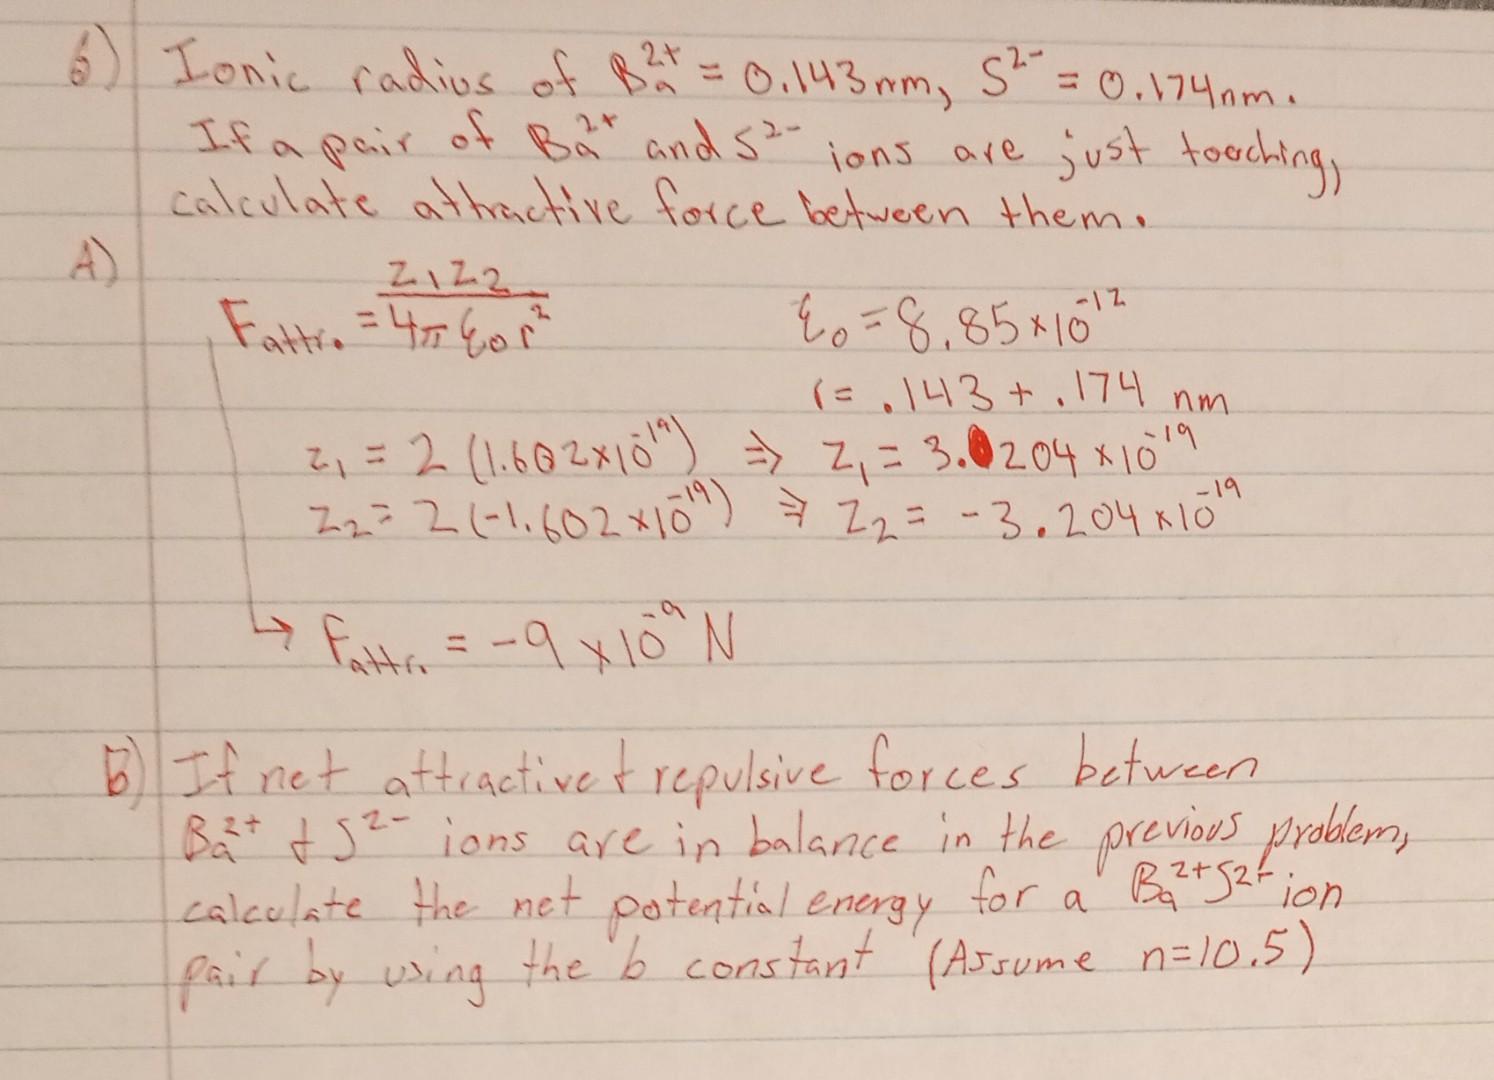 6) Ionic radius of Ba²⁺ = 0.143nm, S²⁻ = 0.174nm.
If a pair of Ba²⁺ and S²⁻ ions are just touching,
calculate attractive force between them.
A)
F attr. = Z₁Z₂ / 4π ε₀ r²
ε₀ = 8.85×10⁻¹²
r = .143 + .174 nm
Z₁ = 2 (1.602×10⁻¹⁹) ⇒ Z₁ = 3.204 × 10⁻¹⁹
Z₂ = 2 (-1.602×10⁻¹⁹) ⇒ Z₂ = -3.204×10⁻¹⁹
↳ F attr. = -9 × 10⁻⁹ N
B) If net attractive + repulsive forces between
Ba²⁺ + S²⁻ ions are in balance in the previous problem,
calculate the net potential energy for a Ba²⁺S²⁻ ion
pair by using the b constant (Assume n=10.5)